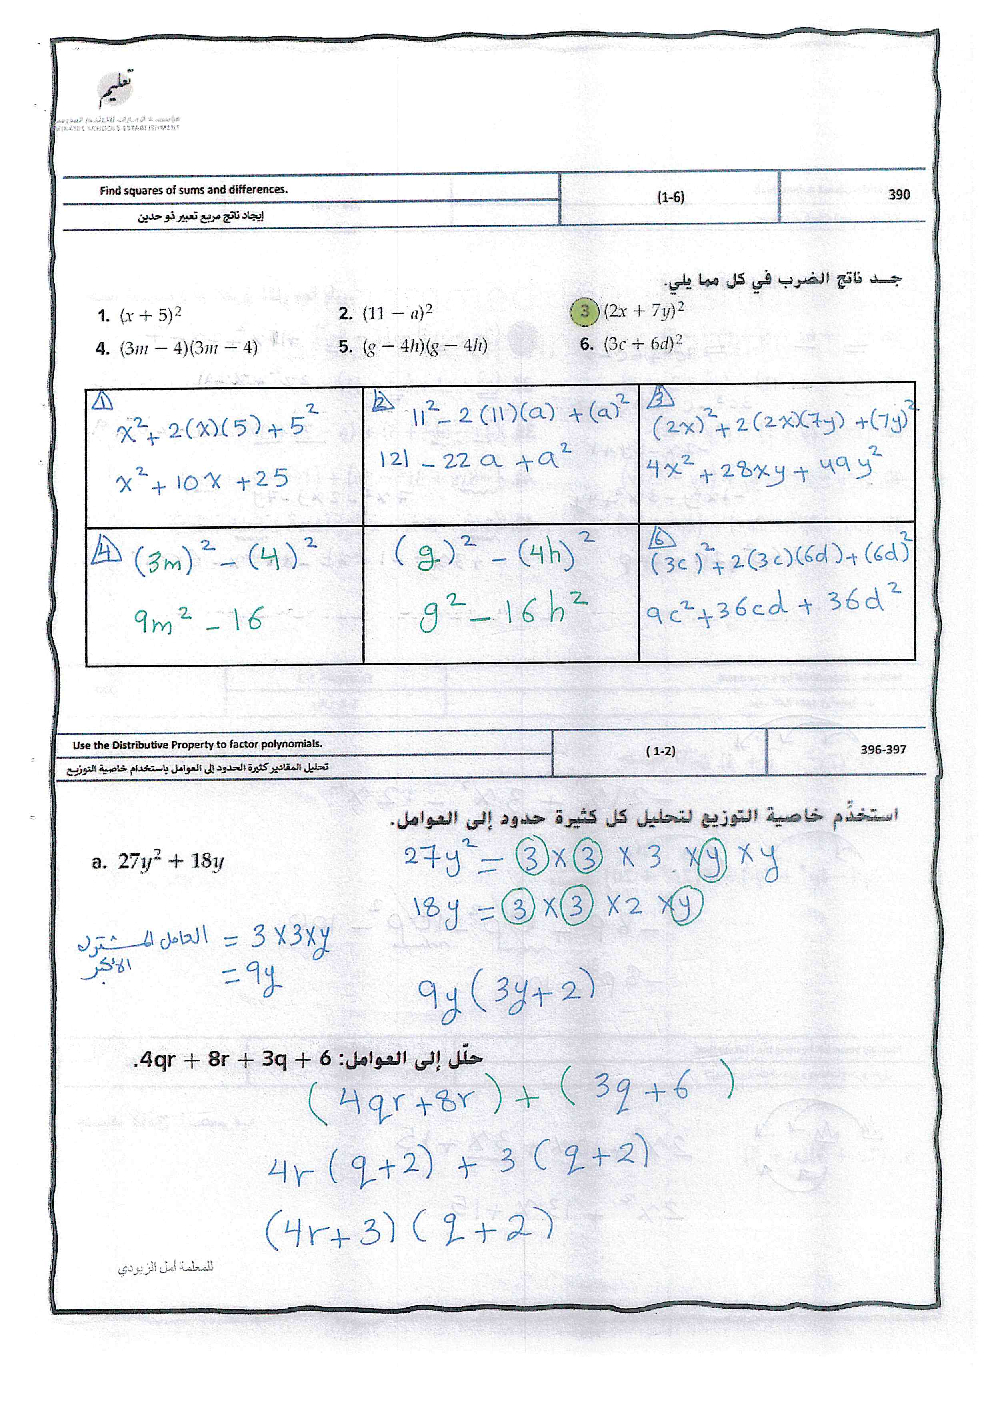 تعليم
Find squares of sums and differences.
إيجاد ناتج مربع تعبير ذو حدين
(1-6)
390
جـد ناتج الضرب في كل مما يلي.
1. (x + 5)²
2. (11 − a)²
3 (2x + 7y)²
4. (3m − 4)(3m − 4)
5. (g − 4h)(g − 4h)
6. (3c + 6d)²
1
x² + 2(x)(5) + 5²
x² + 10x + 25
2
11² − 2(11)(a) + (a)²
121 − 22a + a²
3
(2x)² + 2(2x)(7y) + (7y)²
4x² + 28xy + 49y²
4
(3m)² − (4)²
9m² − 16
(g)² − (4h)²
g² − 16h²
6
(3c)² + 2(3c)(6d) + (6d)²
9c² + 36cd + 36d²
Use the Distributive Property to factor polynomials.
تحليل المقادير كثيرة الحدود إلى العوامل باستخدام خاصية التوزيع
(1-2)
396-397
استخدِّم خاصية التوزيع لتحليل كل كثيرة حدود إلى العوامل.
a. 27y² + 18y
27y² = 3 × 3 × 3 × y × y
18y = 3 × 3 × 2 × y
العامل المشترك = 3×3×y
الأكبر = 9y
9y(3y+2)
حلّل إلى العوامل: 4qr + 8r + 3q + 6.
(4qr+8r) + (3q+6)
4r(q+2) + 3(q+2)
(4r+3)(q+2)
للمعلمة أمل الزيودي